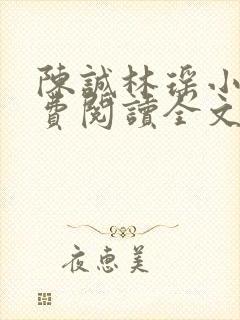 陳誠林瑤小
費閱讀全文
夜惠美